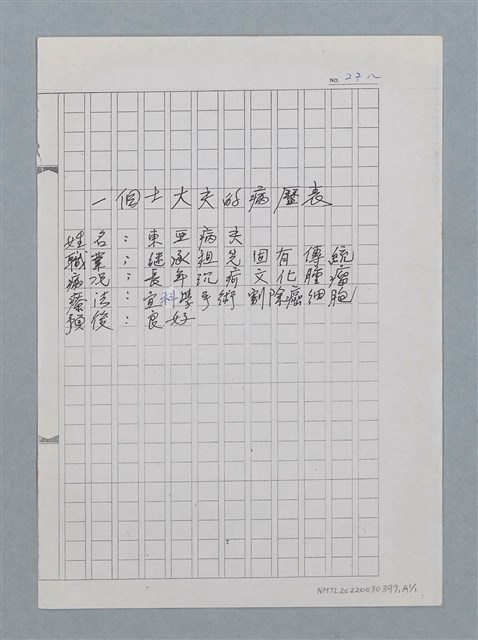 NO. 27八
一個士大夫的病歷表
姓名：東亚病夫
職業：継承祖先固有傳統
病况：長年沉疴文化腫瘤
療法：宜科學手術割除癌細胞
預後：良好
NMTL20220030397,A1/1